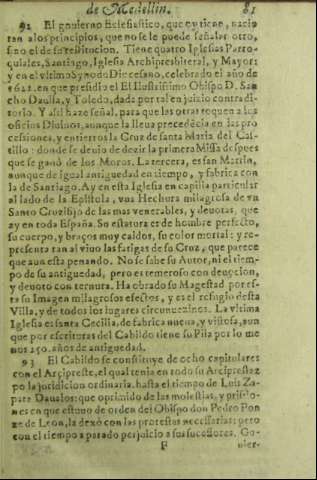 de Medellin. 81
92 El gouierno Eclesiastico, que oy tiene, nacio
tan a los principios, que no se le puede señalar otro,
sino el de su restitucion. Tiene quatro Iglesias Parro-
quiales, Santiago, Iglesia Archipresbiteral, y Mayor:
y en el vltimo Synodo Diocesano, celebrado el año de
en que presidio el Ilustrissimo Obispo D. San
cho Dauila, y Toledo, dada por tal en juizio contradi-
torio. Y assi haze señal, para que las otras toquen a los
oficios Diuinos, aunque la lleua precedēcia en las pro
cessiones, y entierros la Cruz de santa Maria del Cas-
tillo: donde se deuio de dezir la primera Missa despues
que se ganò de los Moros. La tercera, es san Martin,
aunque de igual antiguedad en tiempo, y fabrica con
la de Santiago. Ay en esta Iglesia en capilla particular
al lado de la Epistola, vna Hechura milagrosa de vn
Santo Crucifijo de las mas venerables, y deuotas, que
ay en toda España. Su estatura es de hombre perfecto,
su cuerpo, y braços muy caidos, su color mortal: y re-
presenta tan al viuo las fatigas de su Cruz, que parece
que aun esta penando. No se sabe su Autor, ni el tiem-
po de su antiguedad, pero es temeroso con deuocion,
y deuoto con ternura. Ha obrado su Magestad por es-
ta su Imagen milagrosos efectos, y es el refugio desta
Villa, y de todos los lugares circunuezinos. La vltima
Iglesia es santa Cecilia, de fabrica nueua, y vistosa, aun
que por escrituras del Cabildo tiene su Pila por lo me
nos 250. años de antiguedad.
93 El Cabildo se constituye de ocho capitulares
con el Arcipreste, el qual tenia en todo su Arciprestaz
go la juridicion ordinaria, hasta el tiempo de Luis Za-
pata Daualos: que oprimido de las molestias, y prisio-
nes en que estuuo de orden del Obispo don Pedro Pon
ze de Leon, la dexò con las protestas necessarias: pero
con el tiempo a parado perjuicio a sus sucessores. Go-
F uier-